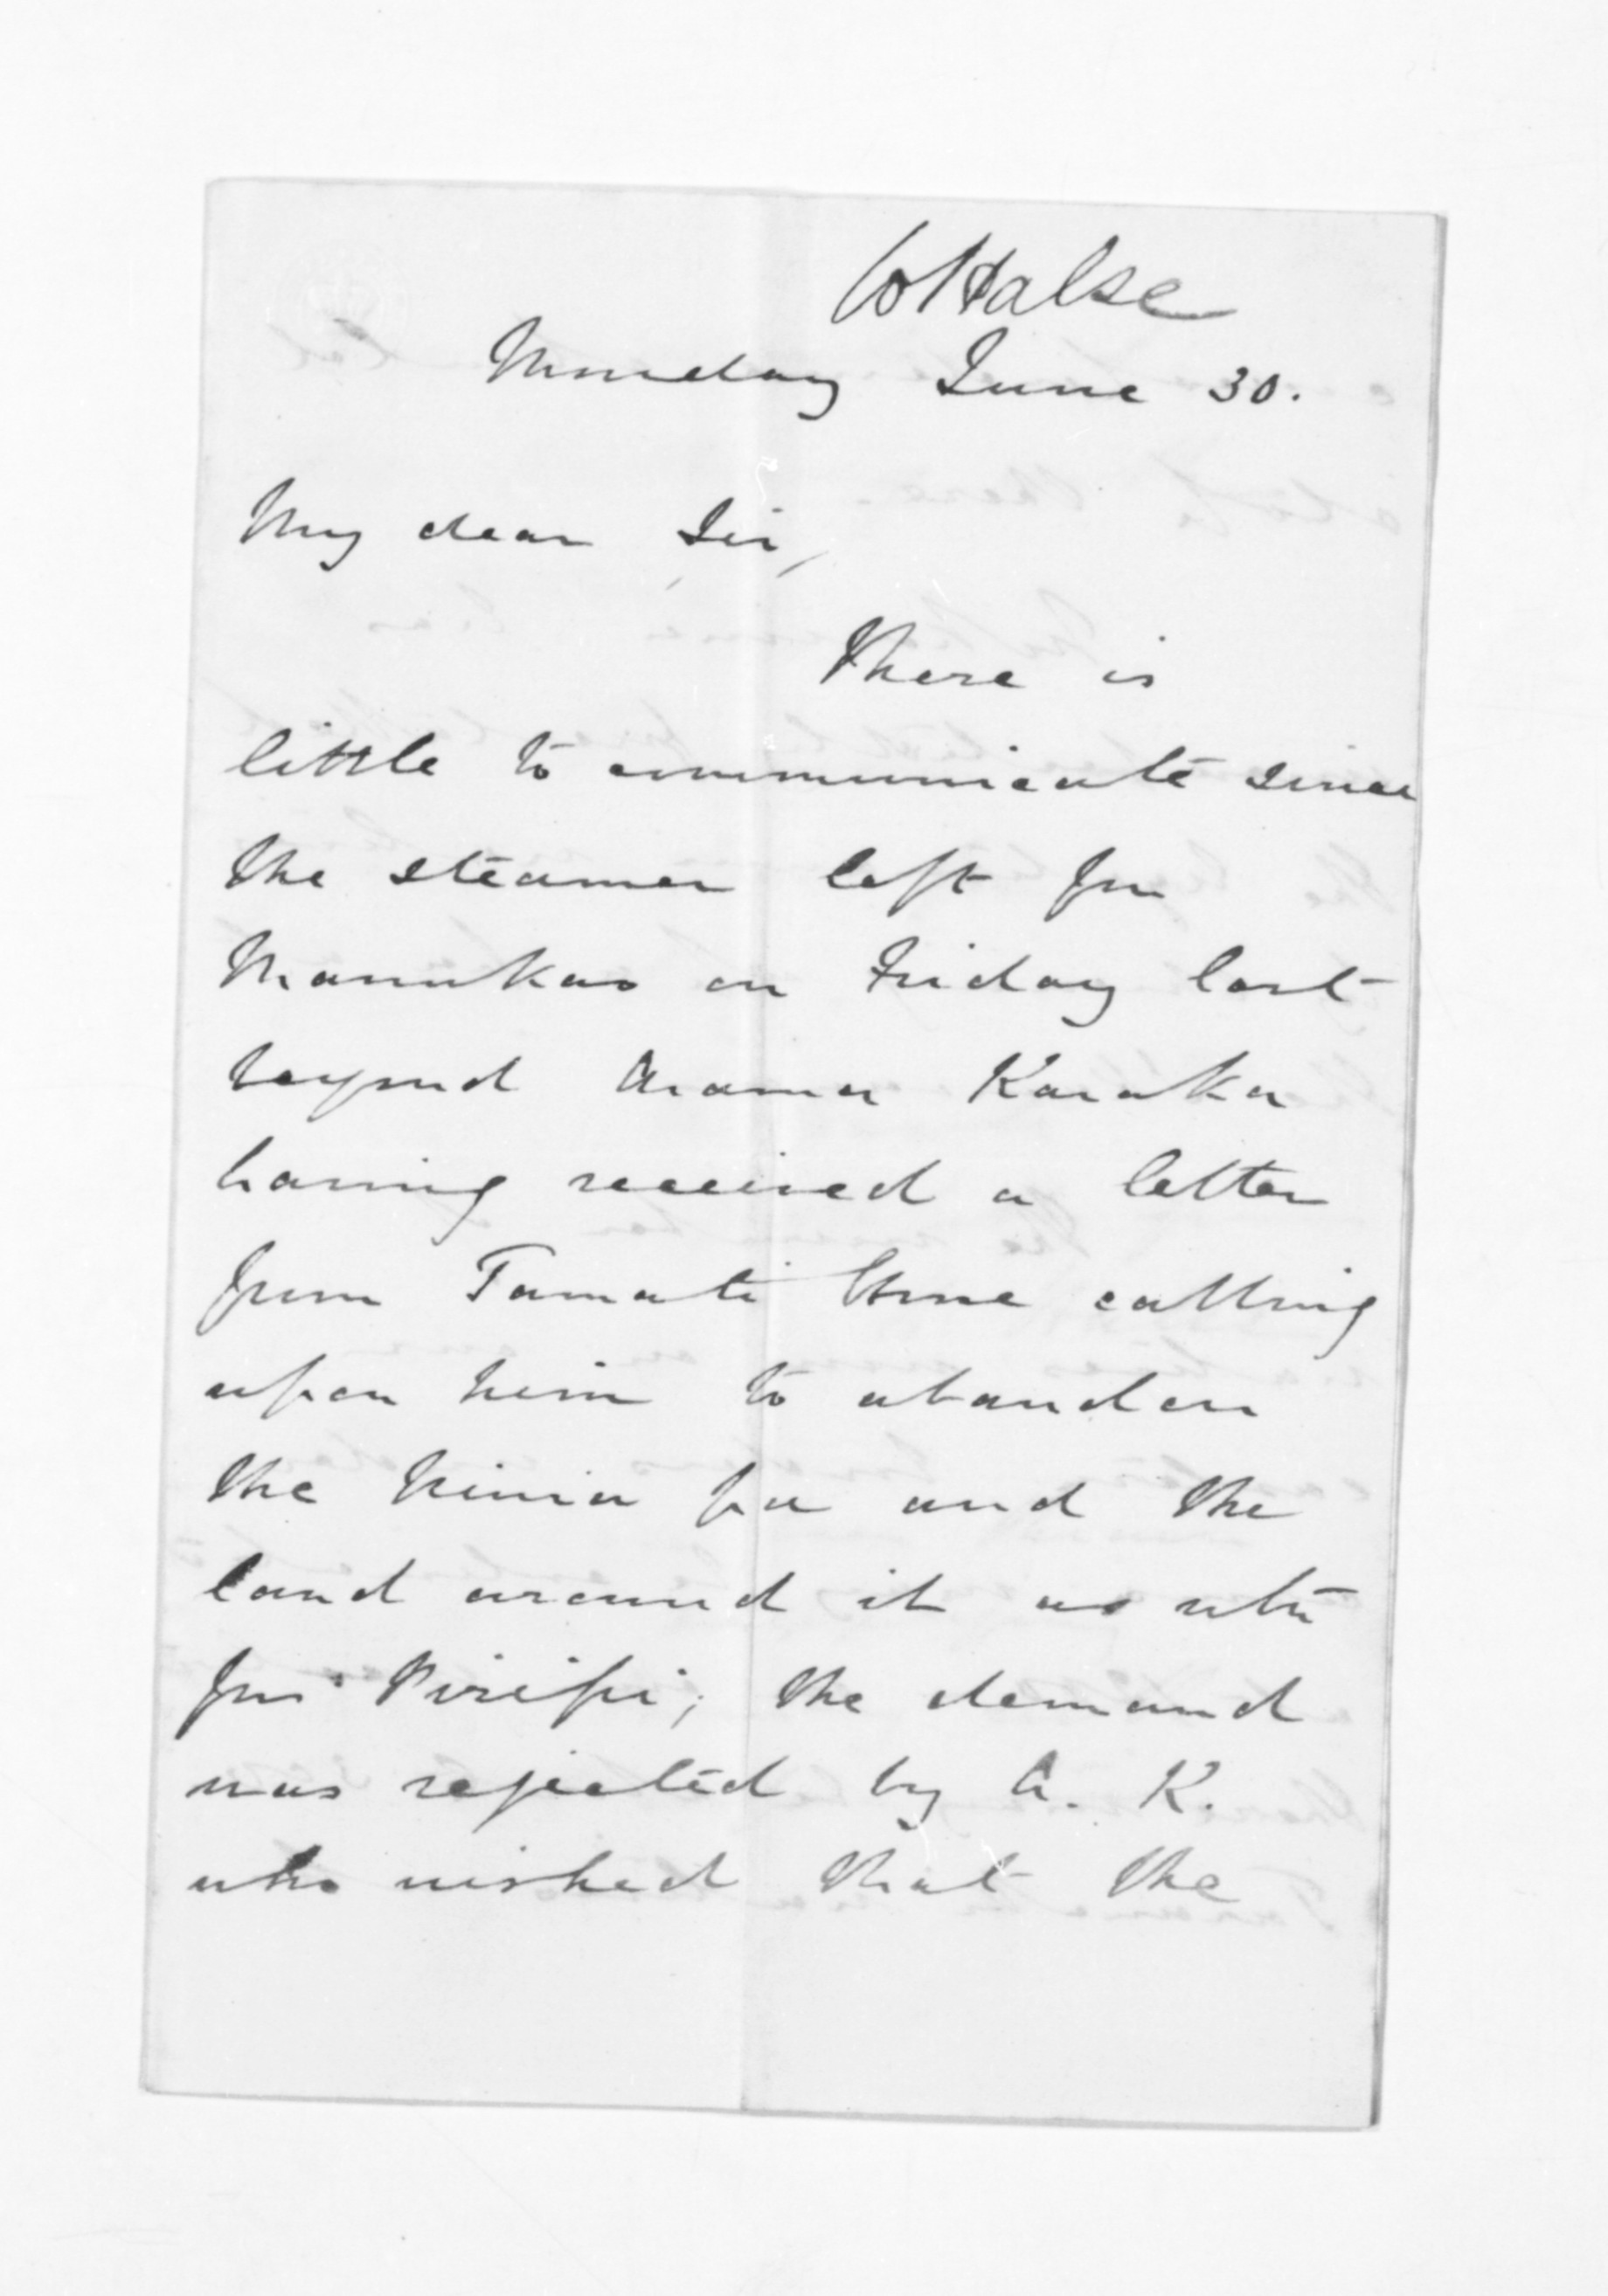 WHalse
Monday June 30.
My dear Sir,
There is
little to communicate since
the steamer left for
Manukao on Friday last
beyond Arama Karaka
having received a letter
from Tamati Hone calling
upon him to abandon
the Ninia pa and the
land around it as utu
for Piripi; the demand
was rejected by A. K.
who wished that the